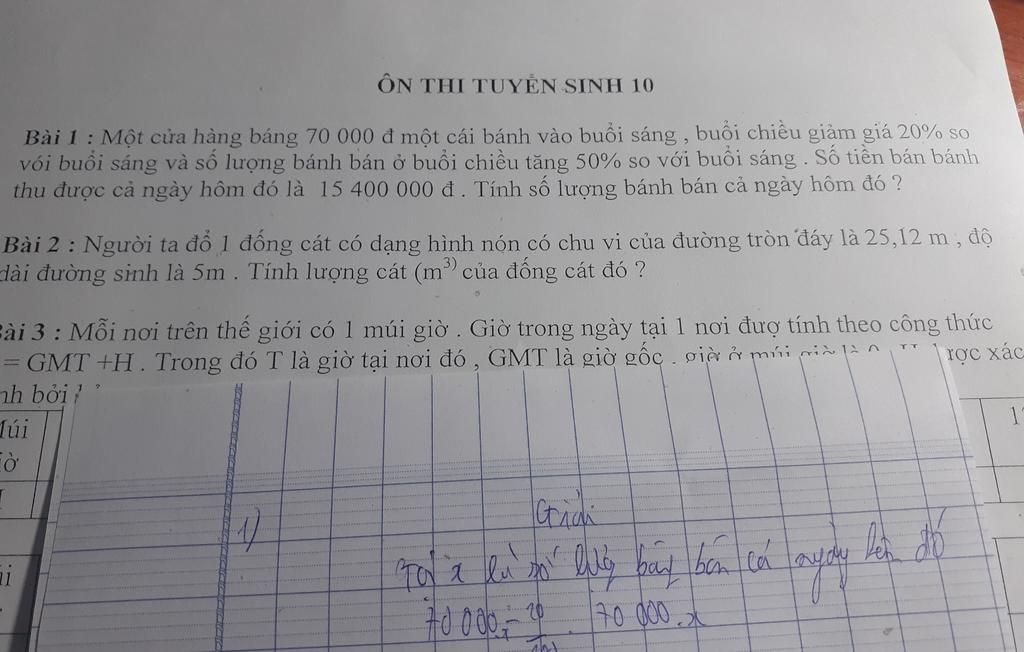 ÔN THI TUYỂN SINH 10
Bài 1 : Một cửa hàng báng 70 000 đ một cái bánh vào buổi sáng , buổi chiều giảm giá 20% so
vói buổi sáng và số lượng bánh bán ở buổi chiều tăng 50% so với buổi sáng . Số tiền bán bánh
thu được cả ngày hôm đó là 15 400 000 đ . Tính số lượng bánh bán cả ngày hôm đó ?
Bài 2 : Người ta đổ 1 đống cát có dạng hình nón có chu vi của đường tròn đáy là 25,12 m , độ
dài đường sinh là 5m . Tính lượng cát (m³) của đống cát đó ?
Bài 3 : Mỗi nơi trên thế giới có 1 múi giờ . Giờ trong ngày tại 1 nơi đượ tính theo công thức
= GMT +H . Trong đó T là giờ tại nơi đó , GMT là giờ gốc . giờ ở múi giờ là 0 . H được xác
nh bởi
Múi
giờ
1) Giải
Gọi x là số lượng bán cả ngày đó
70 000 - 20 70 000 . x